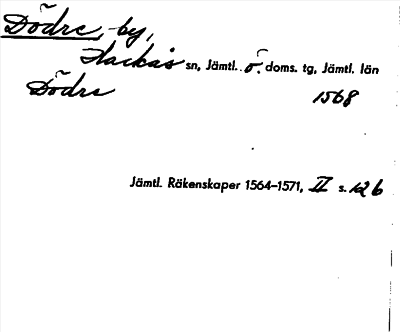 Dödre, by,
Hackås sn, Jämtl. ö. doms. tg, Jämtl. län
Dödre 1568
Jämtl. Räkenskaper 1564–1571, II s. 126